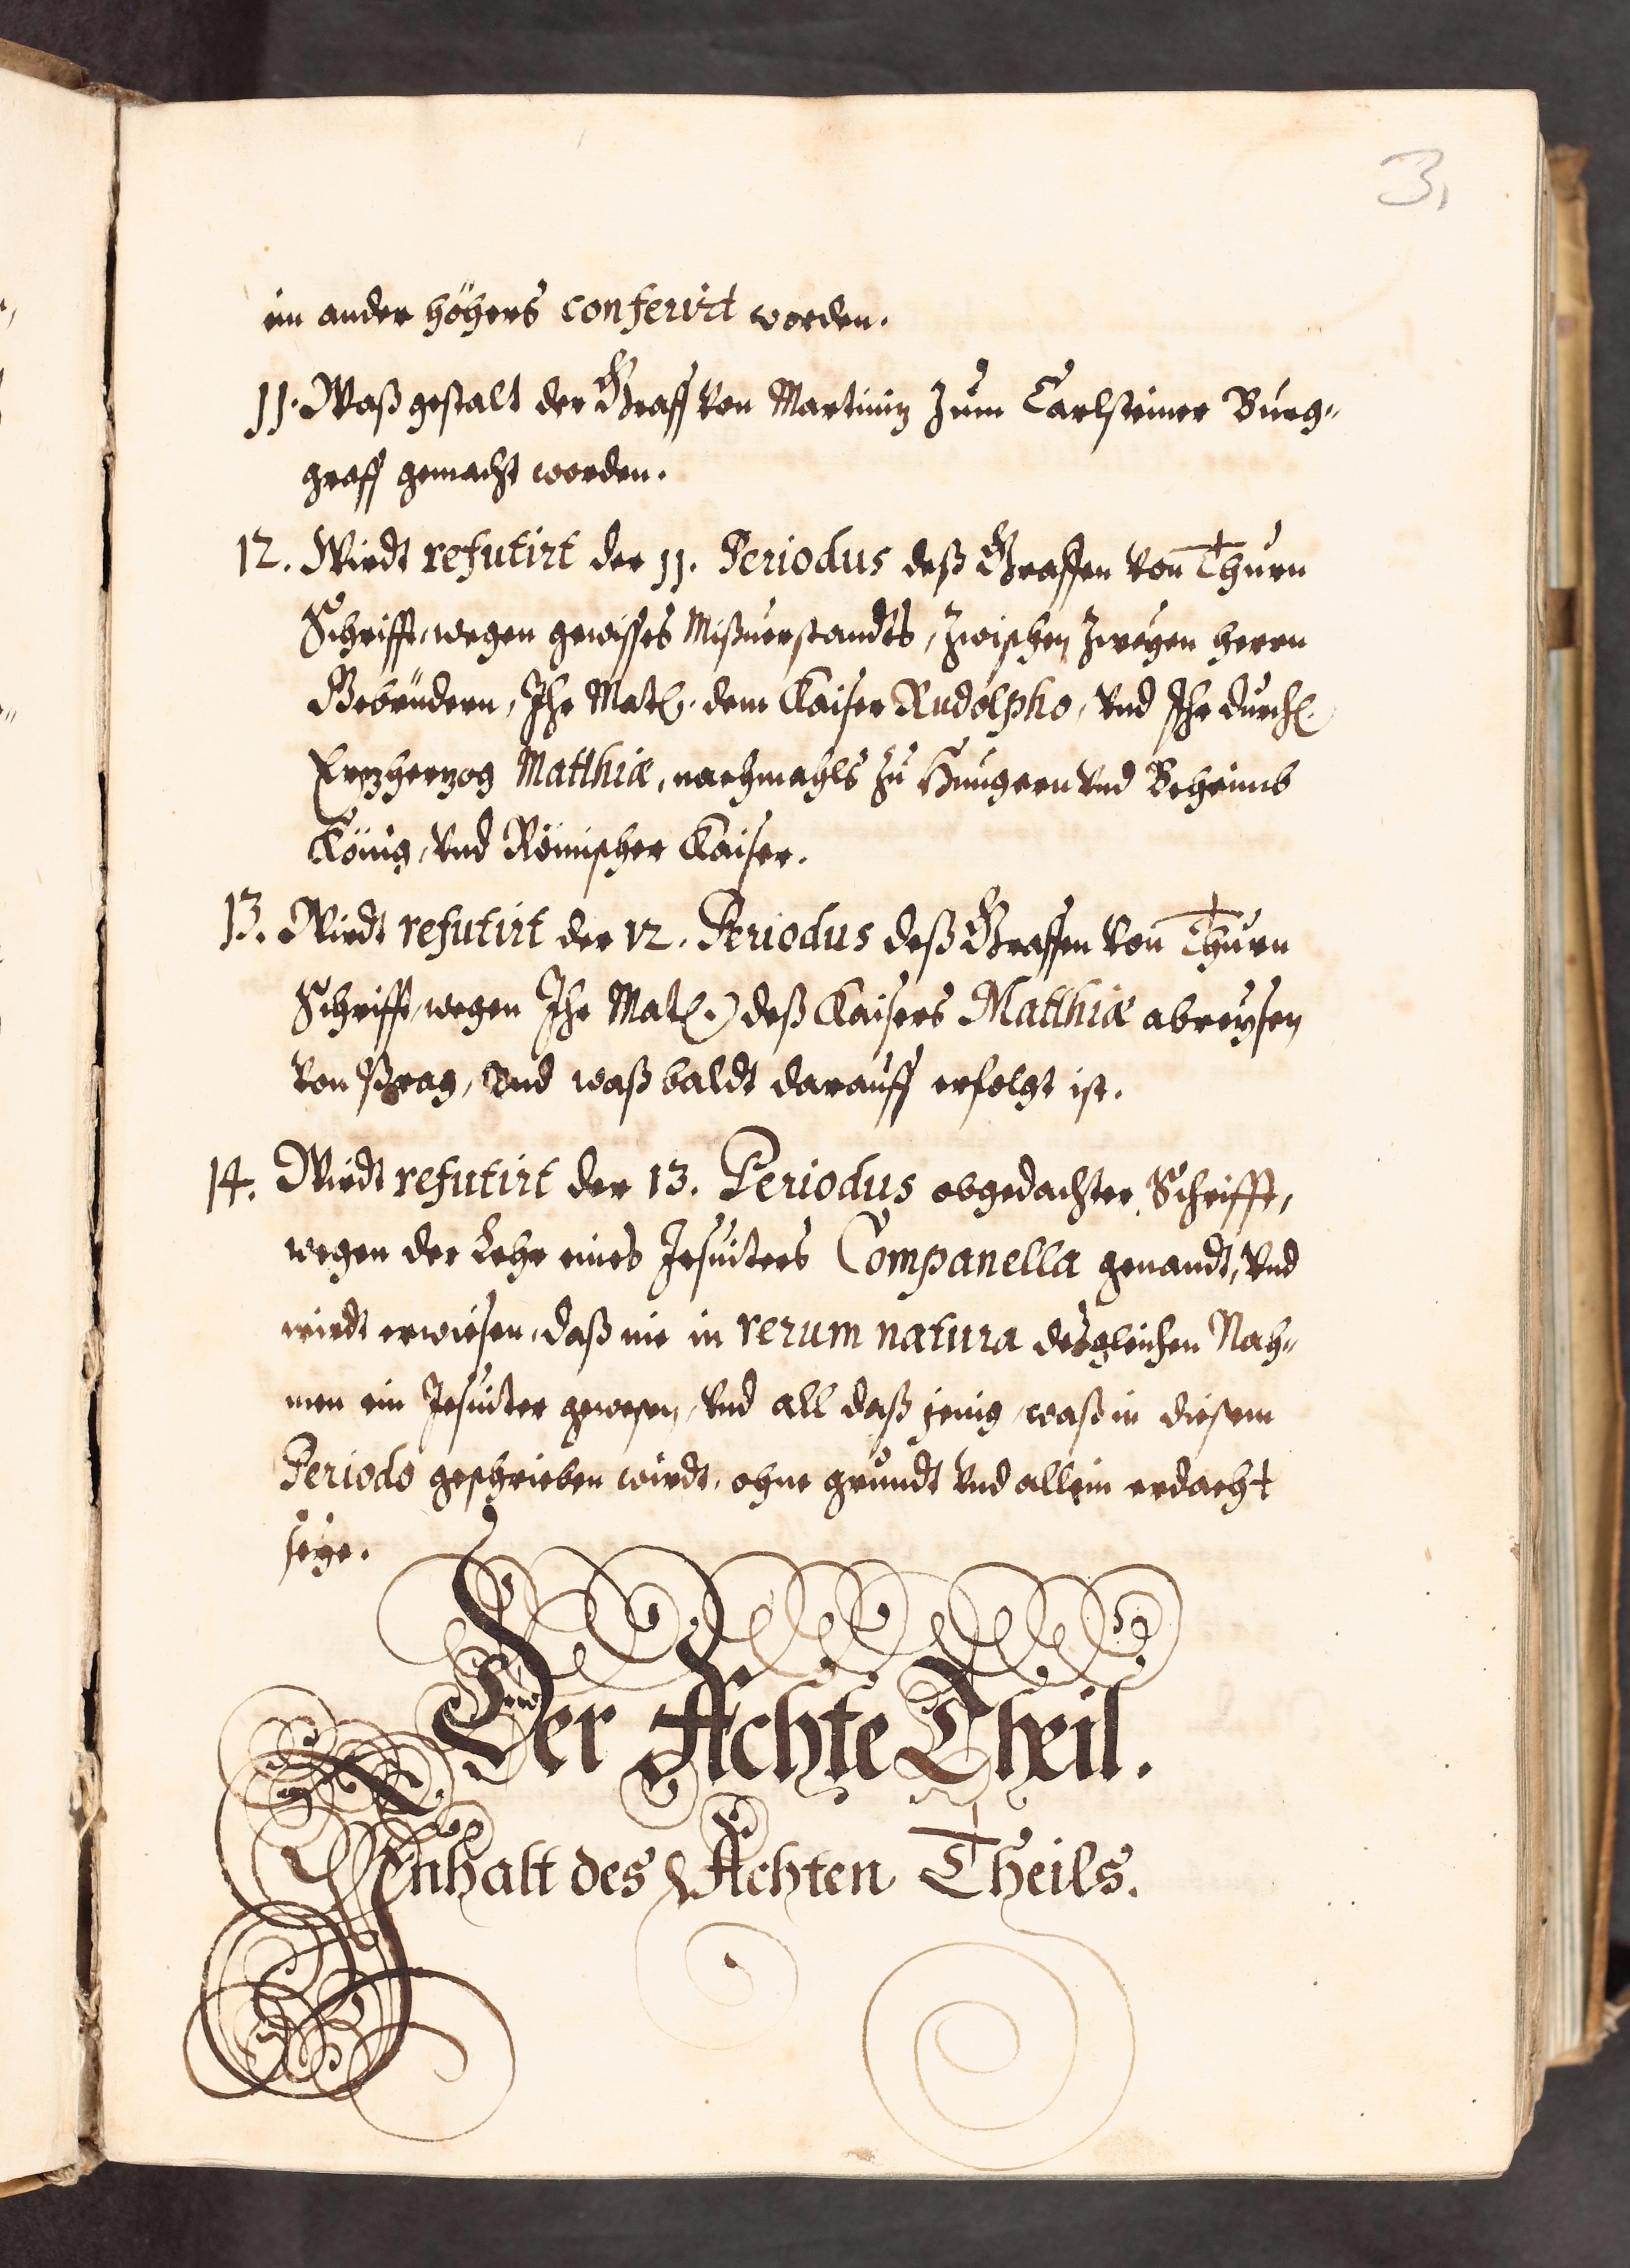 3,
ein ander höhers conferirt worden.
11. Waß gestalt der Graff von Martiniz zum Carlsteiner Burg„
graff gemacht worden.
12. Wirdt refutirt der 11. Periodus deß Graffen von Thurn
Schrifft, wegen gewisses Mißuerstandts, zwischen zweyen herrn
Gebrüdern, Ihr Matt. dem Kaiser Rudolpho, vnd Ihr Durchl.
Erzherzog Matthiæ, nachmahls zu Hungern vnd Beheimb
König, vnd Römischer Kaiser.
13. Wirdt refutirt der 12. Periodus deß Graffen von Thurn
Schrifft, wegen Ihr Matt. deß Kaisers Matthiæ abreysen
von Prag, vnd waß baldt darauff erfolgt ist.
14. Wirdt refutirt der 13. Periodus obgedachter Schrifft,
wegen der Lehr eines Jesuiters Companella genandt, vnd
wirdt erwiesen, daß nie in rerum natura desgleichen Nah„
men ein Jesuiter gewesen, vnd all daß jenig, waß in diesem
Periodo geschrieben wirdt, ohne grundt vnd allein erdacht
seye.
Der Achte Theil.
Inhalt des Achten Theils.